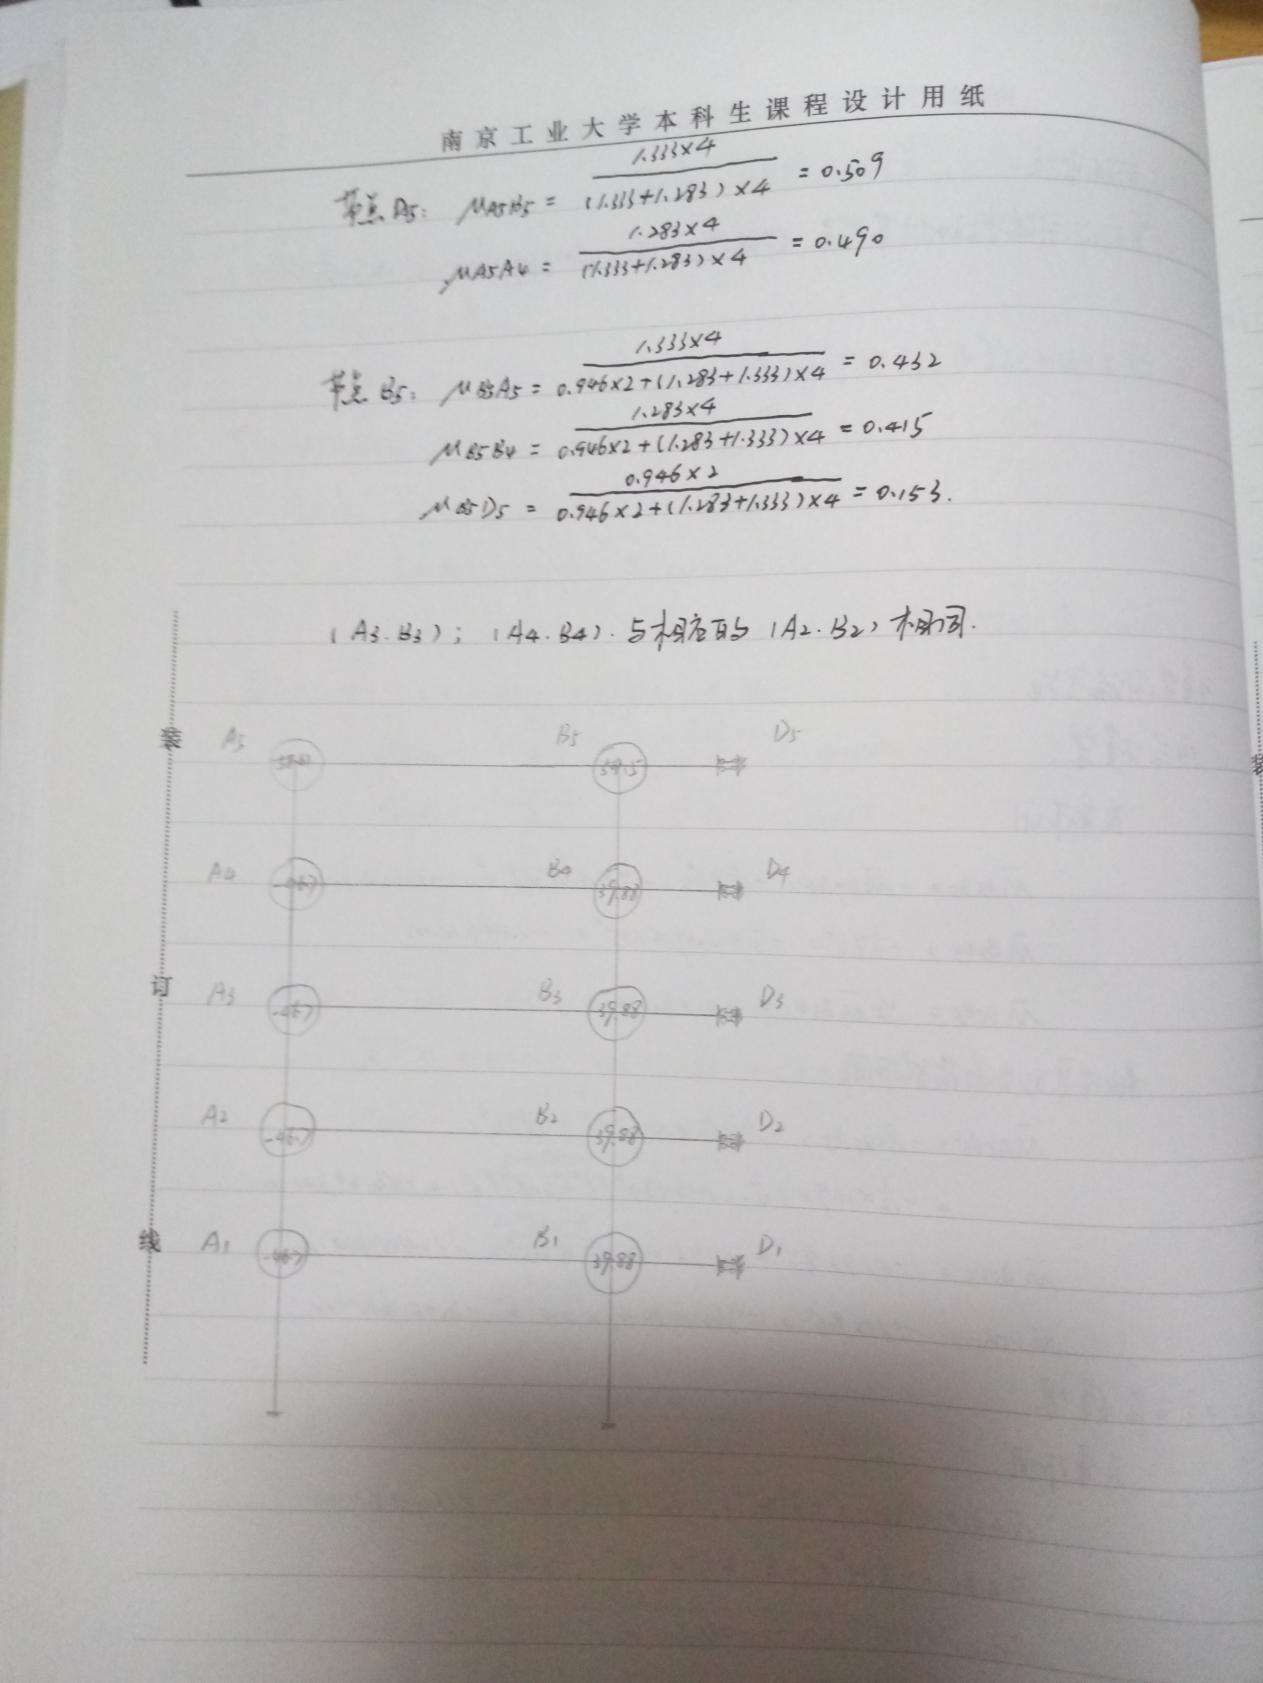 南京工业大学本科生课程设计用纸
节点A5: μA5B5 = 1.333×4 / (1.333+1.283)×4 = 0.509
μA5A4 = 1.283×4 / (1.333+1.283)×4 = 0.490
节点B5: μB5A5 = 1.333×4 / 0.946×2+(1.283+1.333)×4 = 0.432
μB5B4 = 1.283×4 / 0.946×2+(1.283+1.333)×4 = 0.415
μB5D5 = 0.946×2 / 0.946×2+(1.283+1.333)×4 = 0.153.
(A3.B3); (A4.B4).与相应的(A2.B2)相同.
装
A5 B5 D5
58.5
A4 B4 D4
39.88
订
A3 B3 D3
39.88
A2 B2 D2
39.88
线
A1 B1 D1
39.88